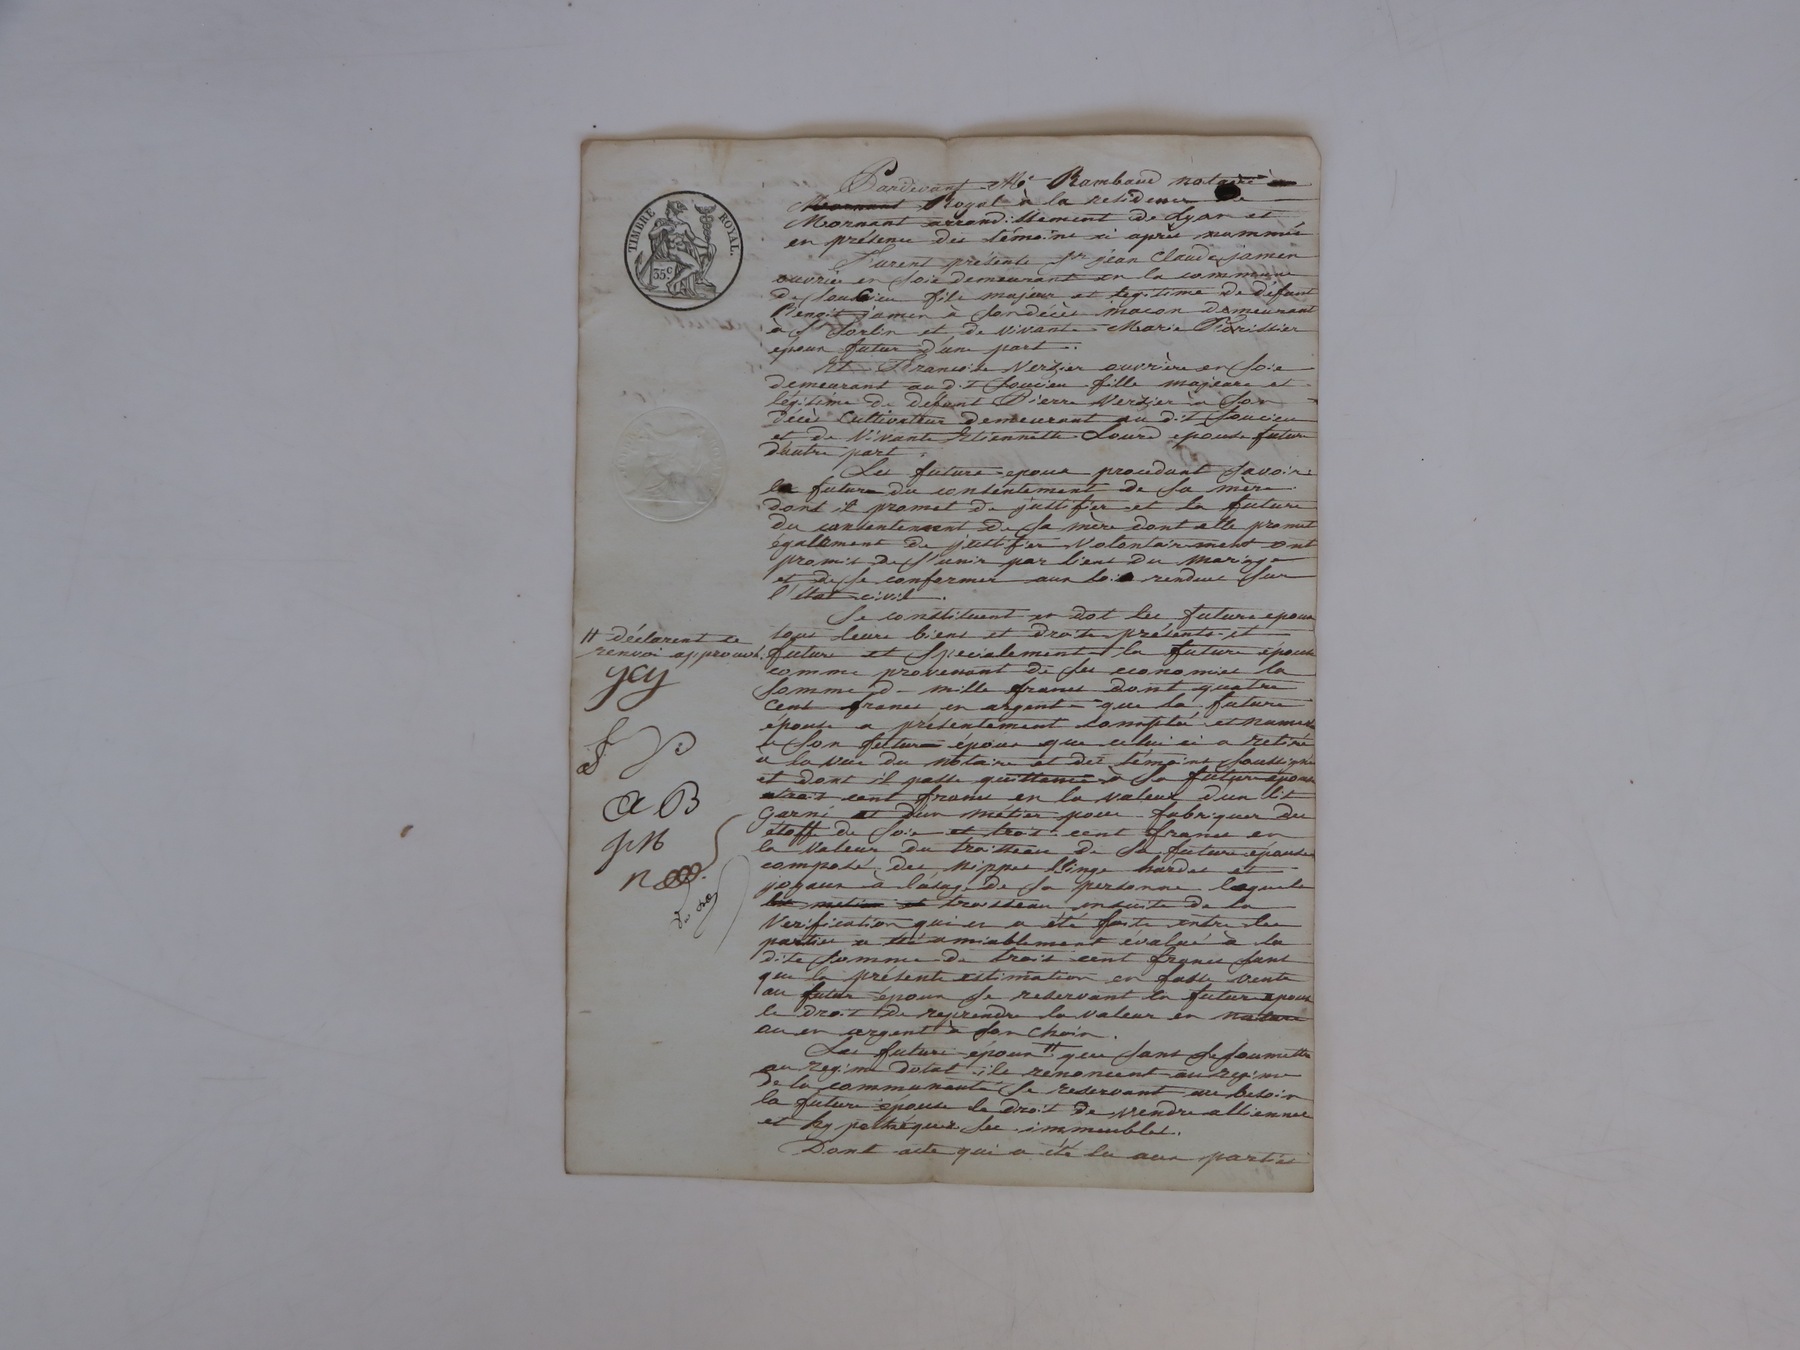 TIMBRE ROYAL
35 c
Pardevant Me Rambaud notaire à
Mornant Royal à la residence de
Mornant arrondissement de Lyon et
en présence des témoins ci après nommés
Furent présents Sr jean Claude jamen
ouvrier en Soie demeurant en la commune
de Soucieu fils majeur et legitime de défunt
Benoit jamen à Son décès maçon demeurant
à St Sorlin et de vivante Marie
epoux futur d'une part.
Et Francoise Verzier ouvrière en Soie
demeurant au dit Soucieu fille majeure et
légitime de défunt Pierre Verzier à Son
décès Cultivateur demeurant au dit Soucieu
et de Vivante Etiennette Lourd epouse future
d'autre part.
Les futurs epoux procedant Savoir
le futur du consentement de Sa mère
dont il promet de justifier et la future
du consentement de Sa mère dont elle promet
également de justifier Volontairement ont
promis de S'unir par liens du mariage
et de Se conformer aux lois rendues Sur
l'état civil.
Se constituent en dot les futurs epoux
tous leurs biens et droits présents et
futurs et Specialement la future épouse
comme provenant de Ses economies la
Somme de mille francs dont quatre
Cent francs en argent que la future
épouse a présentement compté et numéré
à Son futur époux que celui ci a retiré
à la vue du notaire et des témoins Soussignés
et dont il passe quittance à Sa future épouse
trois cent francs en la valeur d'un lit
garni et d'un métier pour fabriquer des
étoffe de Soie et trois cent francs en
la valeur du trousseau de Sa future épouse
composé des Nippes Linge hardes et
joyaux à l'usage de Sa personne lequel
lit metier et trousseau ensuite de la
Vérification qui en a été faite entre les
parties a été amiablement évalué à la
dite Somme de trois cent francs Sans
que la présente estimation en fasse vente
au futur époux Se reservant la future épouse
le droit de reprendre la valeur en nature
ou en argent à Son choix.
Les futurs époux # que Sans Se Soumettre
au regime dotal ils renoncent au regime
de la communauté Se reservant au besoin
la future épouse le droit de vendre allienner
et hypothéquer Ses immeubles.
Dont acte qui a été lu aux parties
# déclarent ce
renvoi approuvé.
JCJ
AB
JM